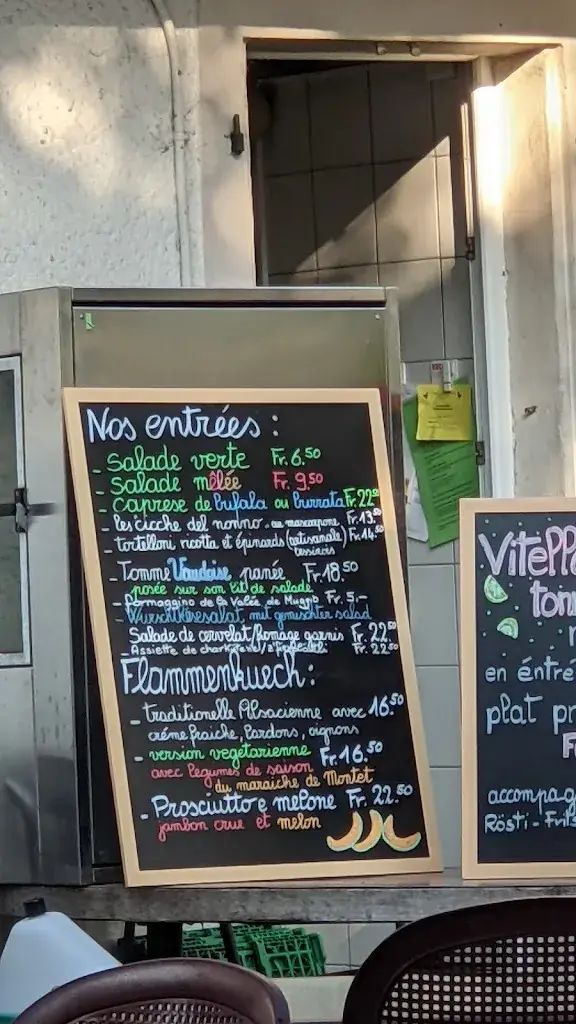 Nos entrées :
- Salade verte Fr. 6.50
- Salade mêlée Fr. 9.50
- Caprese de bufala ou burrata Fr. 22.50
- les cicche del nonno - au mascarpone Fr. 13.50
- tortelloni ricotta et épinards (artisanals) Fr. 14.50
tessinois
- Tomme Vaudoise panée Fr. 18.50
posée sur son lit de salade
- Formaggino de la Valée de Muggio Fr. 5.-
- Wurschtkäsesalat mit gemischter salad
Salade de cervelat/fromage garnis Fr. 22.50
- Assiette de Fr. 22.50
Flammenkuech :
- traditionelle Alsacienne avec 16.50
crème fraiche, lardons, oignons
- version vegetarienne Fr. 16.50
avec legumes de saison
du maraiche de Montet
- Prosciutto e melone Fr. 22.50
jambon crue et melon
Vitell
ton
en entré
plat pr
F
accompag
Rösti - Frit